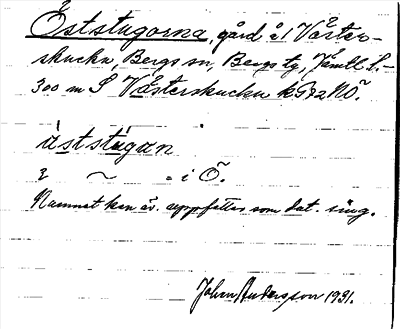 Öststugorna, gård å 1 Väster-
skucku, Bergs sn, Bergs tg, Jämtl. l.-
300 m S Västerskucku k
äststúgan
i Ö.
Namnet kan äv. uppfattas som dat. sing.
Johan Andersson 1931.